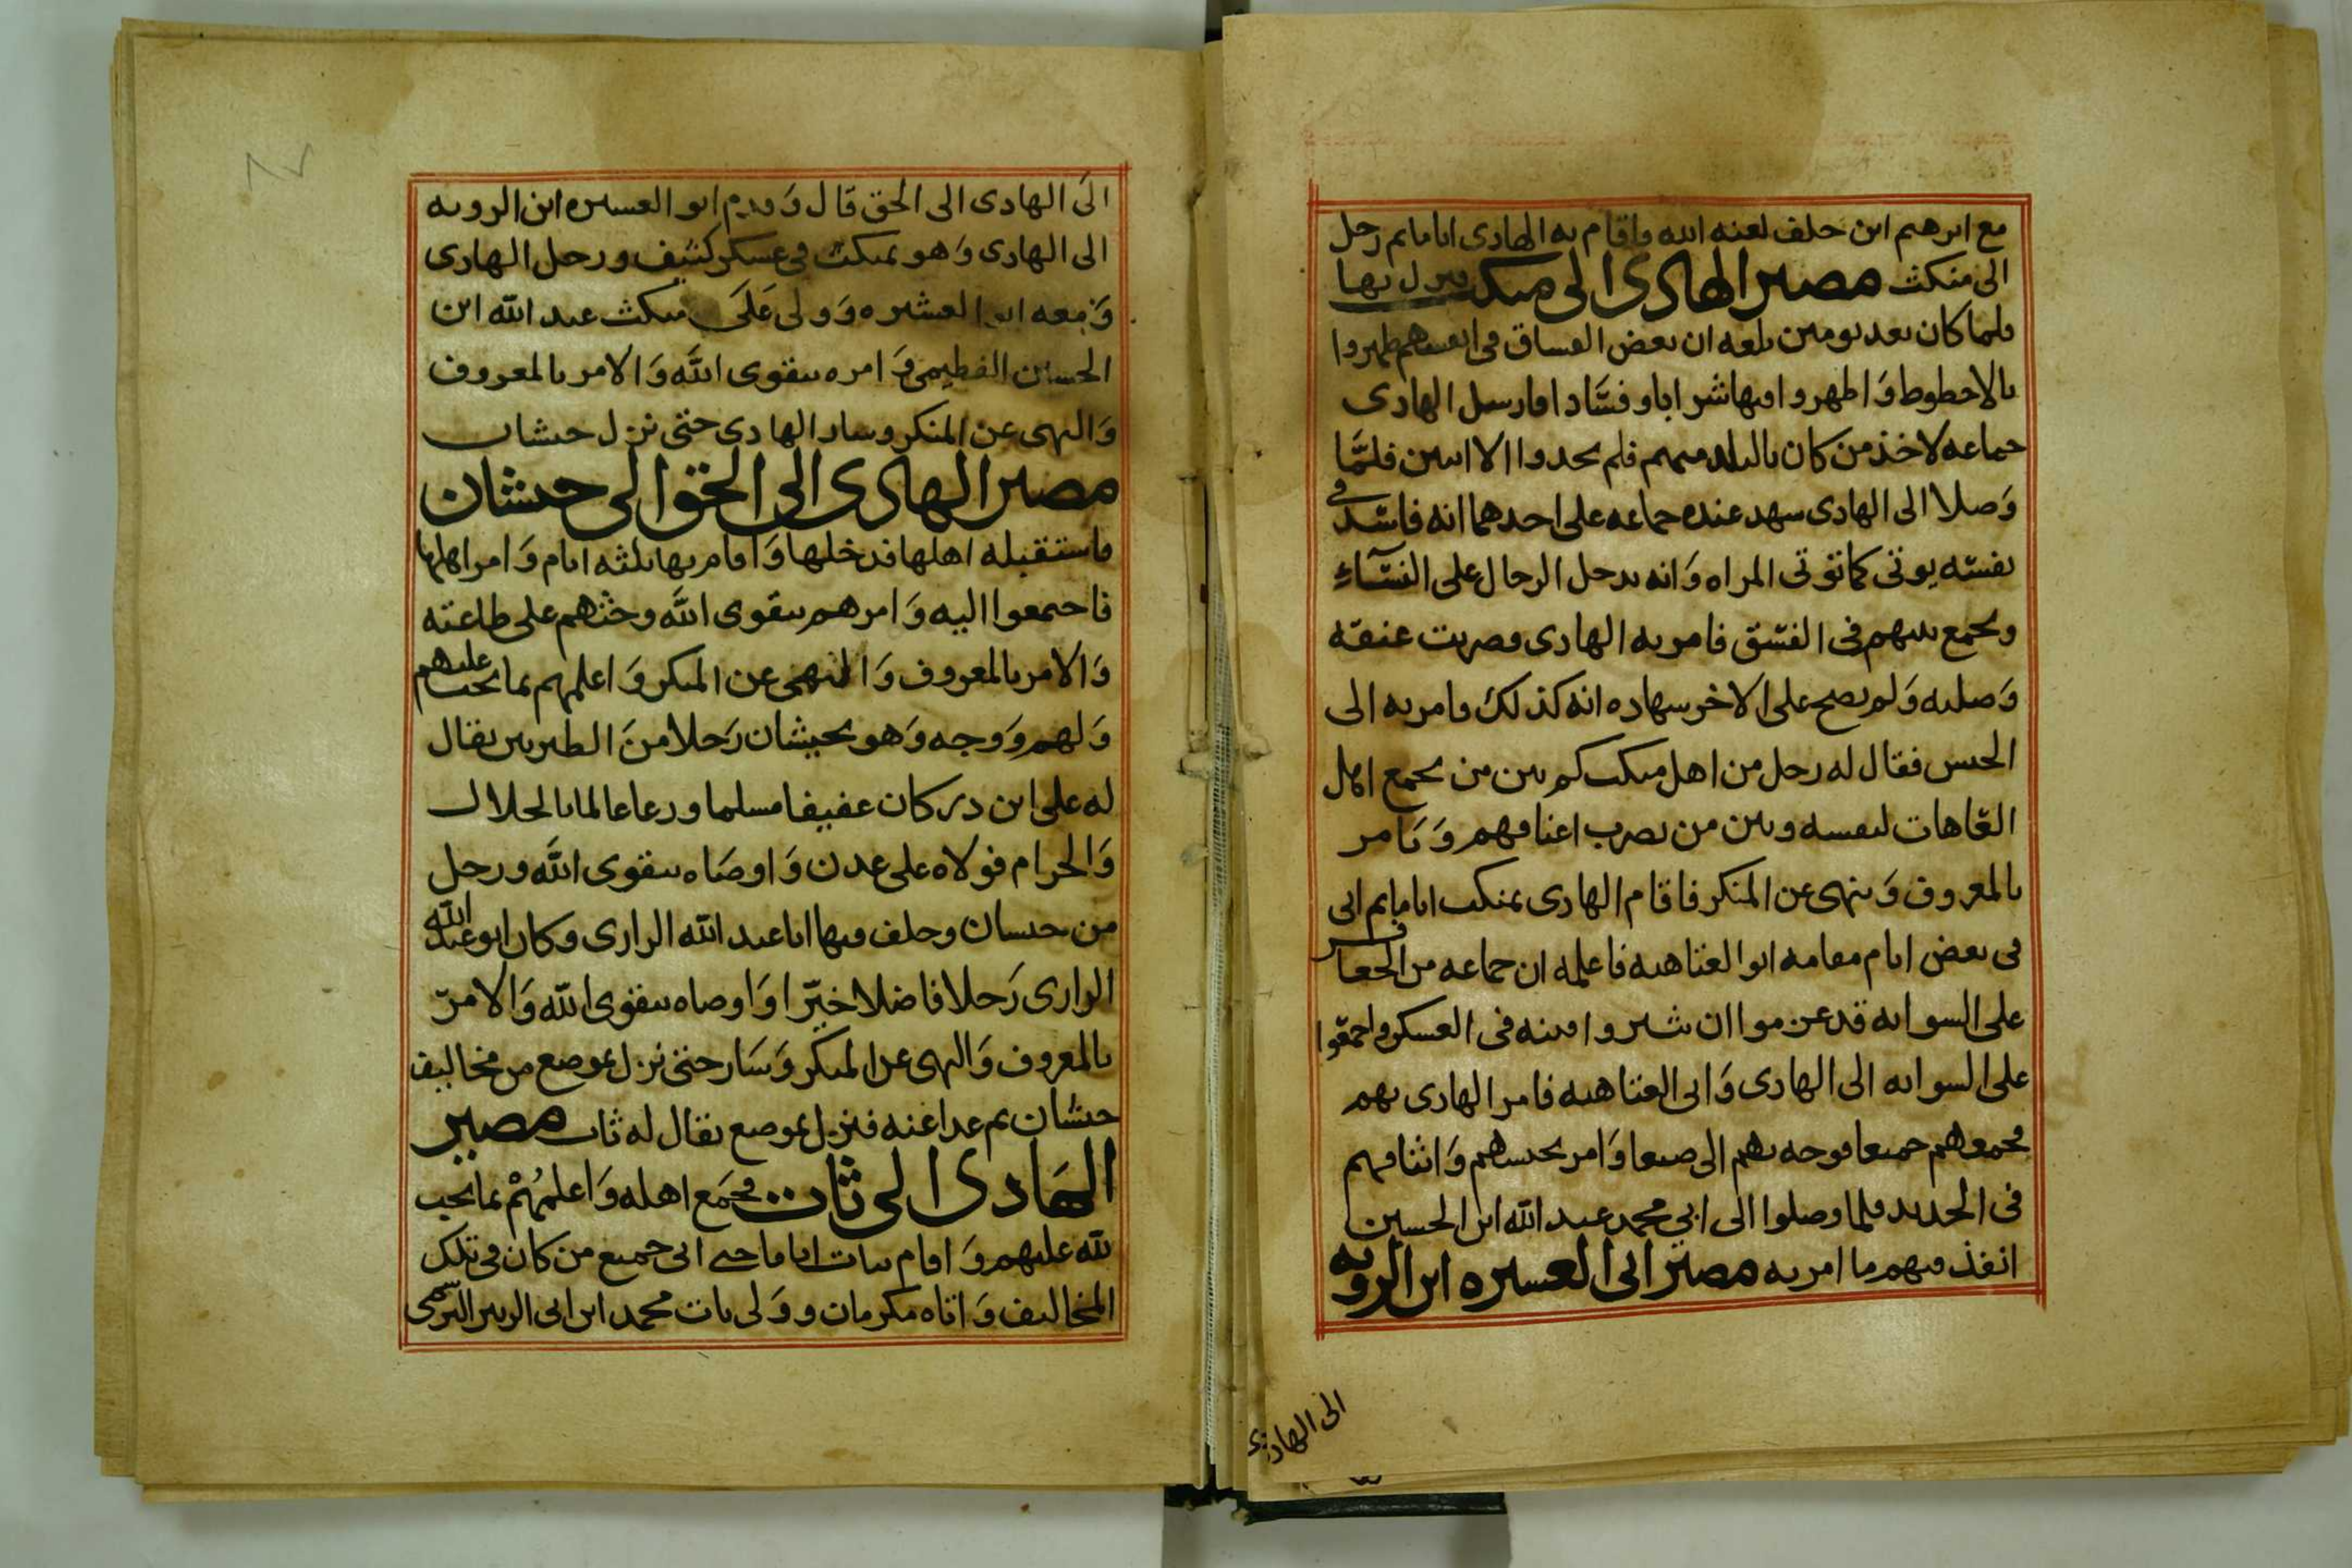 مع ابرهيم ابن خلف لعنه الله واقام به الهادى اياما ثم رحل
الى منكث مصير الهادى الى منكث فنزل بها
فلما كان بعد يومين بلغه ان بعض الفساق فى انفسهم ظهروا
بالاخطوط وَاظهروا فيها شرابا وفسَّادا فارسل الهادى
جماعه لاخذ من كان بالبلد منهم فلم يجدوا الا اثنين فلمَّا
وَصلا الى الهادى شهد عنده جماعه على احدهما انه فاسد فى
نفسه يوتى كما توتى المراه وَانه يدخل الرجال على النسَّاءِ
ويجمع بينهم فى الفسق فامر به الهادى فضربت عنقه
وَصلبه وَلم يصح على الاخر شهاده انه كذلك فامر به الى
الحبس فقال له رجل من اهل منكث كم بين من يجمع اهل
العَاهات لنفسه وبين من يضرب اعناقهم وَيَامر
بالمعروف وَينهى عن المنكر فاقام الهادى بمنكث اياما ثم اتى
فى بعض ايام مقامه ابو العتاهيه فاعلمه ان جماعه من الجعافر
على السوابه قد عزموا ان يثيروا فتنه فى العسكر واجمعوا
على السوابه الى الهادى وَابى العتاهيه فامر الهادى بهم
فجمعهم جميعا فوجه بهم الى صنعا وَامر بحبسهم وَايثاقهم
فى الحديد فلما وصلوا الى ابي محمد عبد الله ابن الحسين
انفذ فيهم ما امر به مصير ابى العشيره ابن الرويه
الى الهادى
الىَ الهادى الى الحق قال وَقدم ابو العشيره ابن الرويه
الى الهادى وَهو بمنكث فى عسكر كثيف ورحل الهادى
وَمعه ابو العشيره وَولى عَلىَ منكث عبد الله ابن
الحسين الفطيمى وَامره بتقوى اللَّه وَالامر بالمعروف
وَالنهى عن المنكر وسار الهادى حتى نزل جيشان
مصير الهادى الى الحق الى جيشان
فاستقبله اهلها فدخلها وَاقام بها ثلثه ايام وَامر اهلها
فاجمعوا اليه وَامرهم بتقوى اللَّه وحثهم على طاعته
وَالامر بالمعروف وَالنهى عن المنكر وَاعلمهم بما يجب عليهم
وَلهم وَوجه وَهو بجيشان رَجلا من الطبريين يقال
له على ابن ذكر كان عفيفا مسلما ورعا عالما بالحلال
وَالحرام فولاه على عدن وَاوصَاه بتقوى اللَّه ورحل
من جيشان وخلف فيها ابا عبد الله الرازى وكان ابو عبد الله
الرازى رَجلا فاضلا خيّرا وَاوصاه بتقوى اللّه وَالامر
بالمعروف وَالنهى عن المنكر وَسَار حتى نزل بموضع من مخاليف
جيشان ثم عدا عنه فنزل بموضع يقال له ثات مصير
الهَادى الى ثات فجمَع اهله وَاعلمهُمْ بما يجب
للّه عليهم وَاقام بثات اياما حتى اتى جميع من كان فى تلك
المخاليف وَاتاه مكرمان ووَلى ثات محمد ابن ابى الزبير